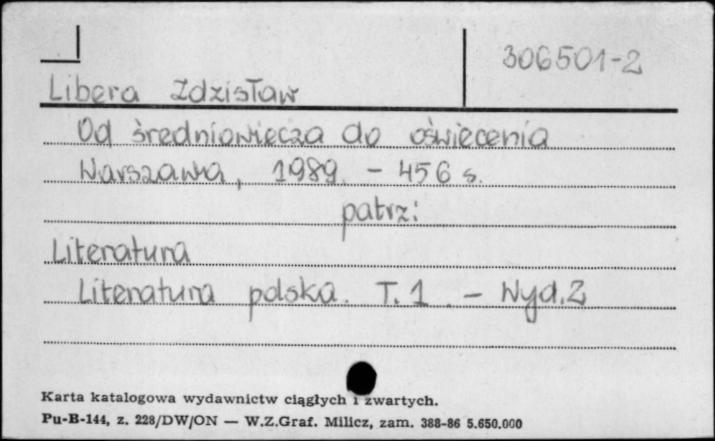 306501-2
Libera Zdzisław
Od średniowiecza do oświecenia
Warszawa, 1989. - 456 s.
patrz:
Literatura
Literatura polska. T. 1. - Wyd. 2
Karta katalogowa wydawnictw ciągłych i zwartych.
Pu-B-144, z. 228/DW/ON — W.Z.Graf. Milicz, zam. 388-86 5.650.000